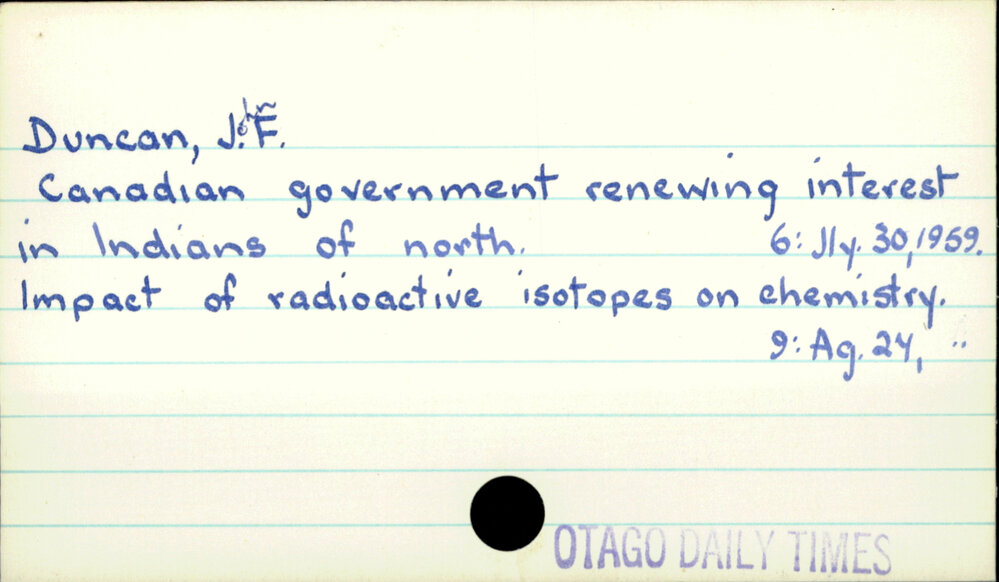 Duncan, John F.
Canadian government renewing interest
in Indians of north. 6: Jly. 30, 1959.
Impact of radioactive isotopes on chemistry.
9: Ag. 24, "
OTAGO DAILY TIMES